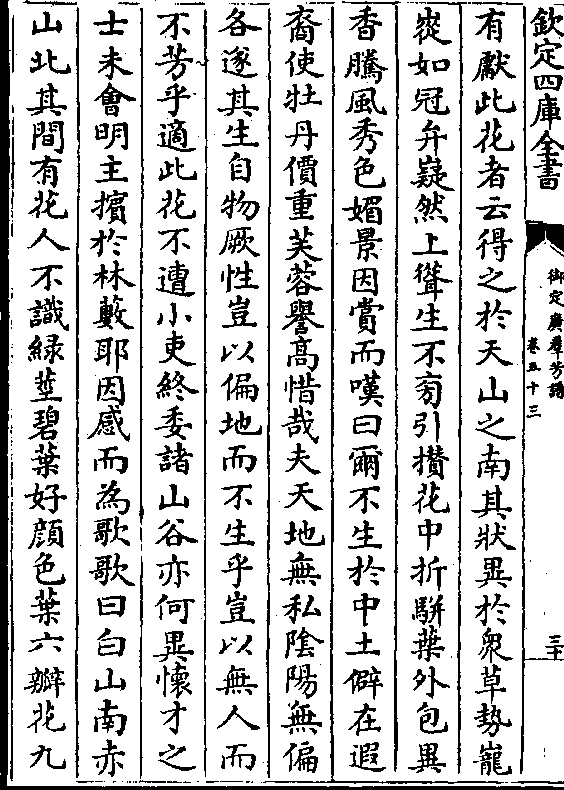 欽定四庫全書
御定廣羣芳譜
卷五十三
三十
有獻此花者云得之於天山之南其狀異於衆草勢巃
嵸如冠弁嶷然上聳生不旁引攢花中折駢葉外包異
香騰風秀色媚景因賞而嘆曰爾不生於中土僻在遐
裔使牡丹價重芙蓉譽髙惜哉夫天地無私陰陽無偏
各遂其生自物厥性豈以偏地而不生乎豈以無人而
不芳乎適此花不遭小吏終委諸山谷亦何異懷才之
士未會明主擯於林藪耶因感而為歌歌曰白山南赤
山北其間有花人不識緑莖碧葉好顔色葉六瓣花九